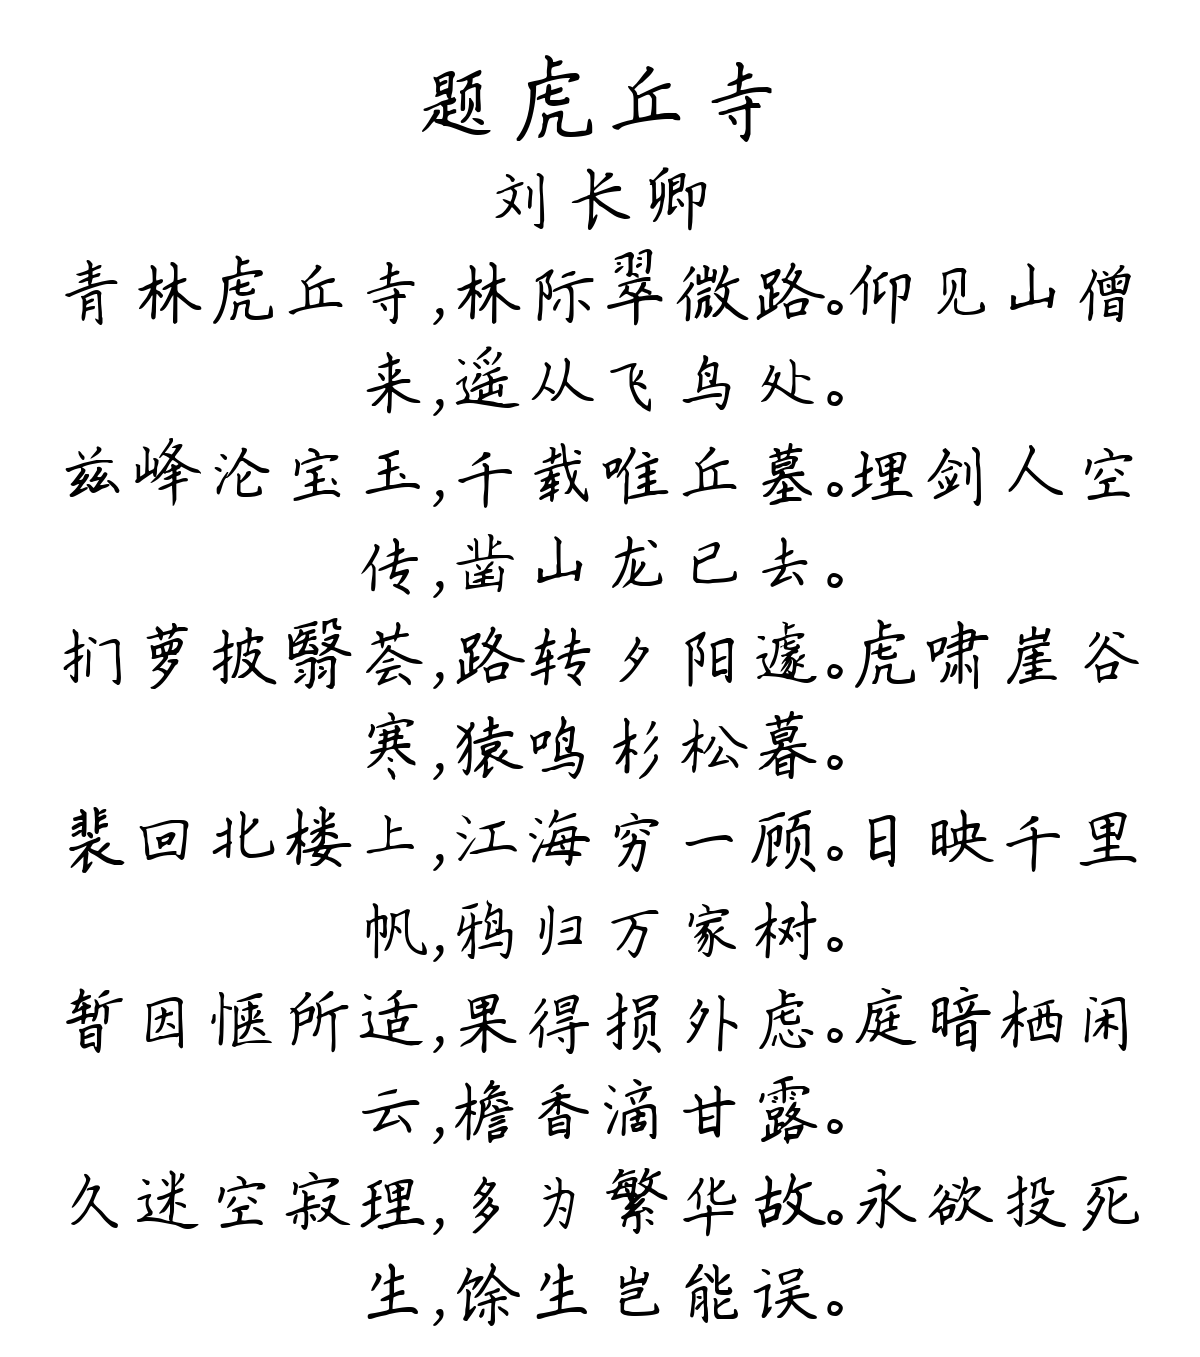 题虎丘寺
刘长卿
青林虎丘寺,林际翠微路。仰见山僧
来,遥从飞鸟处。
兹峰沦宝玉,千载唯丘墓。埋剑人空
传,凿山龙已去。
扪萝披翳荟,路转夕阳遽。虎啸崖谷
寒,猿鸣杉松暮。
裴回北楼上,江海穷一顾。日映千里
帆,鸦归万家树。
暂因惬所适,果得损外虑。庭暗栖闲
云,檐香滴甘露。
久迷空寂理,多为繁华故。永欲投死
生,馀生岂能误。